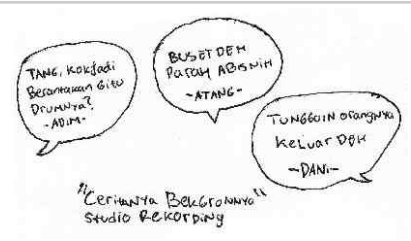 TANG, KOKJadi
Berantakan Gitu
Drumnya?
-ADIM-
BUSET DEH
Parah ABISNIH
-ATANG-
TUNGGUIN orangnya
Keluar DEH
-DANI-
"Ceritanya BekGronnya"
Studio Rekording